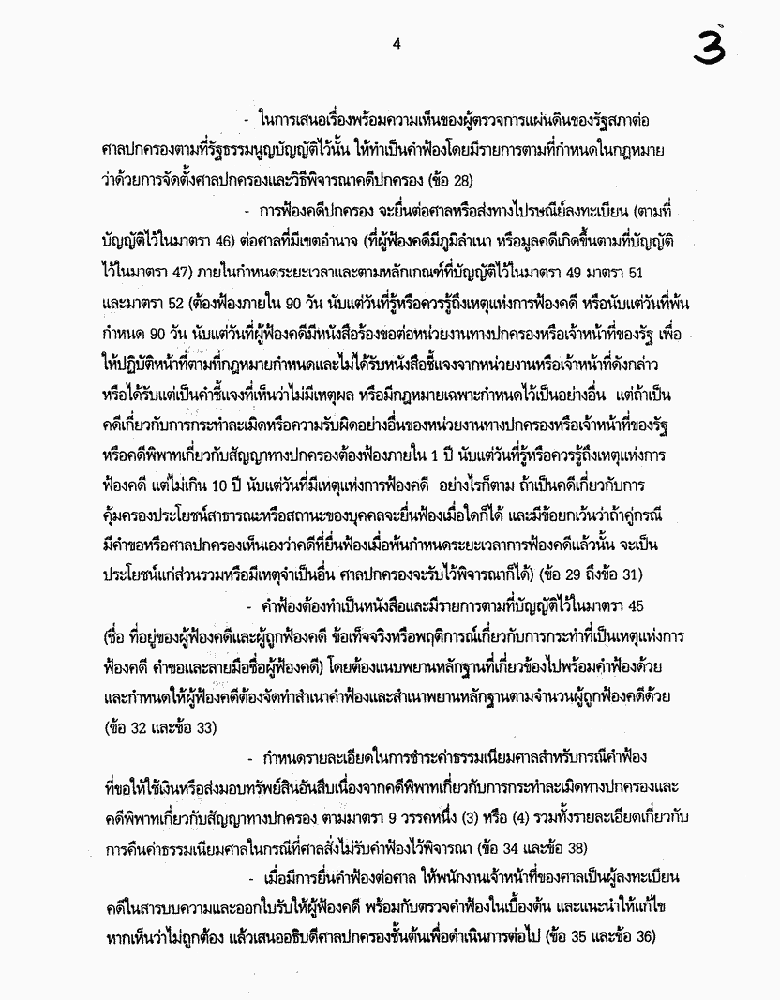 4
3
- ในการเสนอเรื่องพร้อมความเห็นของผู้ตรวจการแผ่นดินของรัฐสภาต่อ
ศาลปกครองตามที่รัฐธรรมนูญบัญญัติไว้นั้น ให้ทำเป็นคำฟ้องโดยมีรายการตามที่กำหนดในกฎหมาย
ว่าด้วยการจัดตั้งศาลปกครองและวิธีพิจารณาคดีปกครอง (ข้อ 28)
- การฟ้องคดีปกครอง จะยื่นต่อศาลหรือส่งทางไปรษณีย์ลงทะเบียน (ตามที่
บัญญัติไว้ในมาตรา 46) ต่อศาลที่มีเขตอำนาจ (ที่ผู้ฟ้องคดีมีภูมิลำเนา หรือมูลคดีเกิดขึ้นตามที่บัญญัติ
ไว้ในมาตรา 47) ภายในกำหนดระยะเวลาและตามหลักเกณฑ์ที่บัญญัติไว้ในมาตรา 49 มาตรา 51
และมาตรา 52 (ต้องฟ้องภายใน 90 วัน นับแต่วันที่รู้หรือควรรู้ถึงเหตุแห่งการฟ้องคดี หรือนับแต่วันที่พ้น
กำหนด 90 วัน นับแต่วันที่ผู้ฟ้องคดีมีหนังสือร้องขอต่อหน่วยงานทางปกครองหรือเจ้าหน้าที่ของรัฐ เพื่อ
ให้ปฏิบัติหน้าที่ตามที่กฎหมายกำหนดและไม่ได้รับหนังสือชี้แจงจากหน่วยงานหรือเจ้าหน้าที่ดังกล่าว
หรือได้รับแต่เป็นคำชี้แจงที่เห็นว่าไม่มีเหตุผล หรือมีกฎหมายเฉพาะกำหนดไว้เป็นอย่างอื่น แต่ถ้าเป็น
คดีเกี่ยวกับการกระทำละเมิดหรือความรับผิดอย่างอื่นของหน่วยงานทางปกครองหรือเจ้าหน้าที่ของรัฐ
หรือคดีพิพาทเกี่ยวกับสัญญาทางปกครองต้องฟ้องภายใน 1 ปี นับแต่วันที่รู้หรือควรรู้ถึงเหตุแห่งการ
ฟ้องคดี แต่ไม่เกิน 10 ปี นับแต่วันที่มีเหตุแห่งการฟ้องคดี อย่างไรก็ตาม ถ้าเป็นคดีเกี่ยวกับการ
คุ้มครองประโยชน์สาธารณะหรือสถานะของบุคคลจะยื่นฟ้องเมื่อใดก็ได้ และมีข้อยกเว้นว่าถ้าคู่กรณี
มีคำขอหรือศาลปกครองเห็นเองว่าคดีที่ยื่นฟ้องเมื่อพ้นกำหนดระยะเวลาการฟ้องคดีแล้วนั้น จะเป็น
ประโยชน์แก่ส่วนรวมหรือมีเหตุจำเป็นอื่น ศาลปกครองจะรับไว้พิจารณาก็ได้) (ข้อ 29 ถึงข้อ 31)
- คำฟ้องต้องทำเป็นหนังสือและมีรายการตามที่บัญญัติไว้ในมาตรา 45
(ชื่อ ที่อยู่ของผู้ฟ้องคดีและผู้ถูกฟ้องคดี ข้อเท็จจริงหรือพฤติการณ์เกี่ยวกับการกระทำที่เป็นเหตุแห่งการ
ฟ้องคดี คำขอและลายมือชื่อผู้ฟ้องคดี) โดยต้องแนบพยานหลักฐานที่เกี่ยวข้องไปพร้อมคำฟ้องด้วย
และกำหนดให้ผู้ฟ้องคดีต้องจัดทำสำเนาคำฟ้องและสำเนาพยานหลักฐานตามจำนวนผู้ถูกฟ้องคดีด้วย
(ข้อ 32 และข้อ 33)
- กำหนดรายละเอียดในการชำระค่าธรรมเนียมศาลสำหรับกรณีคำฟ้อง
ที่ขอให้ใช้เงินหรือส่งมอบทรัพย์สินอันสืบเนื่องจากคดีพิพาทเกี่ยวกับการกระทำละเมิดทางปกครองและ
คดีพิพาทเกี่ยวกับสัญญาทางปกครอง ตามมาตรา 9 วรรคหนึ่ง (3) หรือ (4) รวมทั้งรายละเอียดเกี่ยวกับ
การคืนค่าธรรมเนียมศาลในกรณีที่ศาลสั่งไม่รับคำฟ้องไว้พิจารณา (ข้อ 34 และข้อ 38)
- เมื่อมีการยื่นคำฟ้องต่อศาล ให้พนักงานเจ้าหน้าที่ของศาลเป็นผู้ลงทะเบียน
คดีในสารบบความและออกใบรับให้ผู้ฟ้องคดี พร้อมกับตรวจคำฟ้องในเบื้องต้น และแนะนำให้แก้ไข
หากเห็นว่าไม่ถูกต้อง แล้วเสนออธิบดีศาลปกครองชั้นต้นเพื่อดำเนินการต่อไป (ข้อ 35 และข้อ 36)